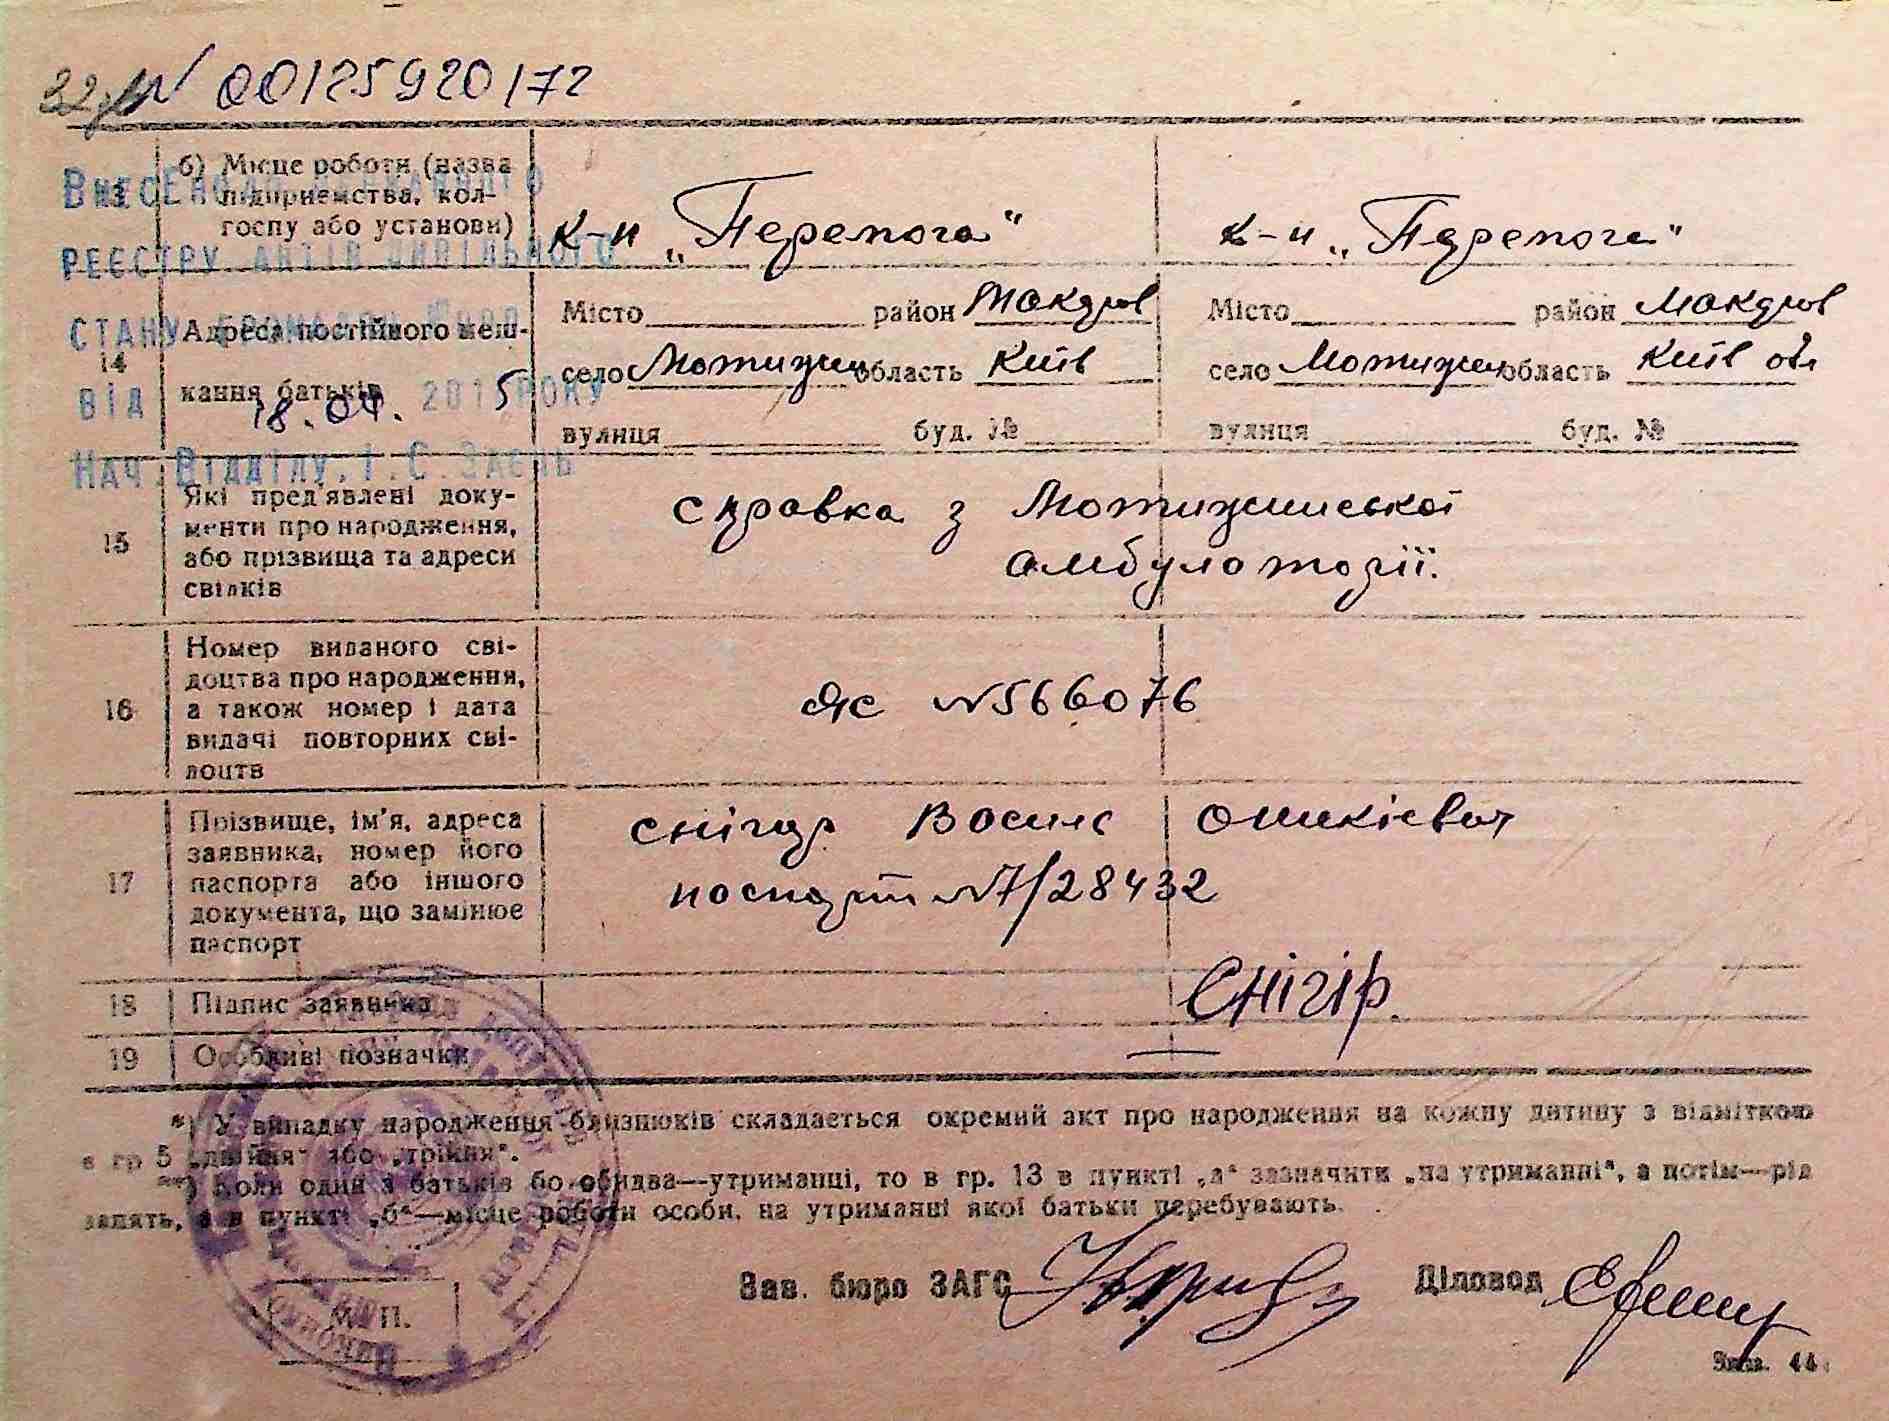 N 00125920172
13
б) Місце роботи (назва
підприємства, кол-
госпу або установи)
к-п „Перемога“
к-п „Перемога“
Внесено до Державного
реєстру актів цивільного
стану громадян
від 18.04. 2015 року
Нач. Відділу. І.С. Заєць
14
Адреса постійного меш-
кання батьків
Місто район Макарів
село Мотижин область Київ
вулиця буд. №
Місто район Макарів
село Мотижин область Київ обл
вулиця буд. №
15
Які пред'явлені доку-
менти про народження,
або прізвища та адреси
свідків
справка з Мотижинської
амбулаторії.
16
Номер виданого сві-
доцтва про народження,
а також номер і дата
видачі повторних сві-
доцтв
ЯС N566076
17
Прізвище, ім'я, адреса
заявника, номер його
паспорта або іншого
документа, що замінює
паспорт
Снігир Василь Оникієвич
паспорт N7/28432
18
Підпис заявника
Снігір.
19
Особливі позначки
*) У випадку народження близнюків складається окремий акт про народження на кожну дитину з відміткою
в гр 5 „двійня“ або „трійня“.
**) Коли один з батьків бо обидва—утриманці, то в гр. 13 в пункті „а“ зазначити „на утриманні“, а потім—рід
занять, а в пункті „б“—місце роботи особи, на утриманні якої батьки перебувають.
Зав. бюро ЗАГС
Діловод
М. П.
Зам. 44